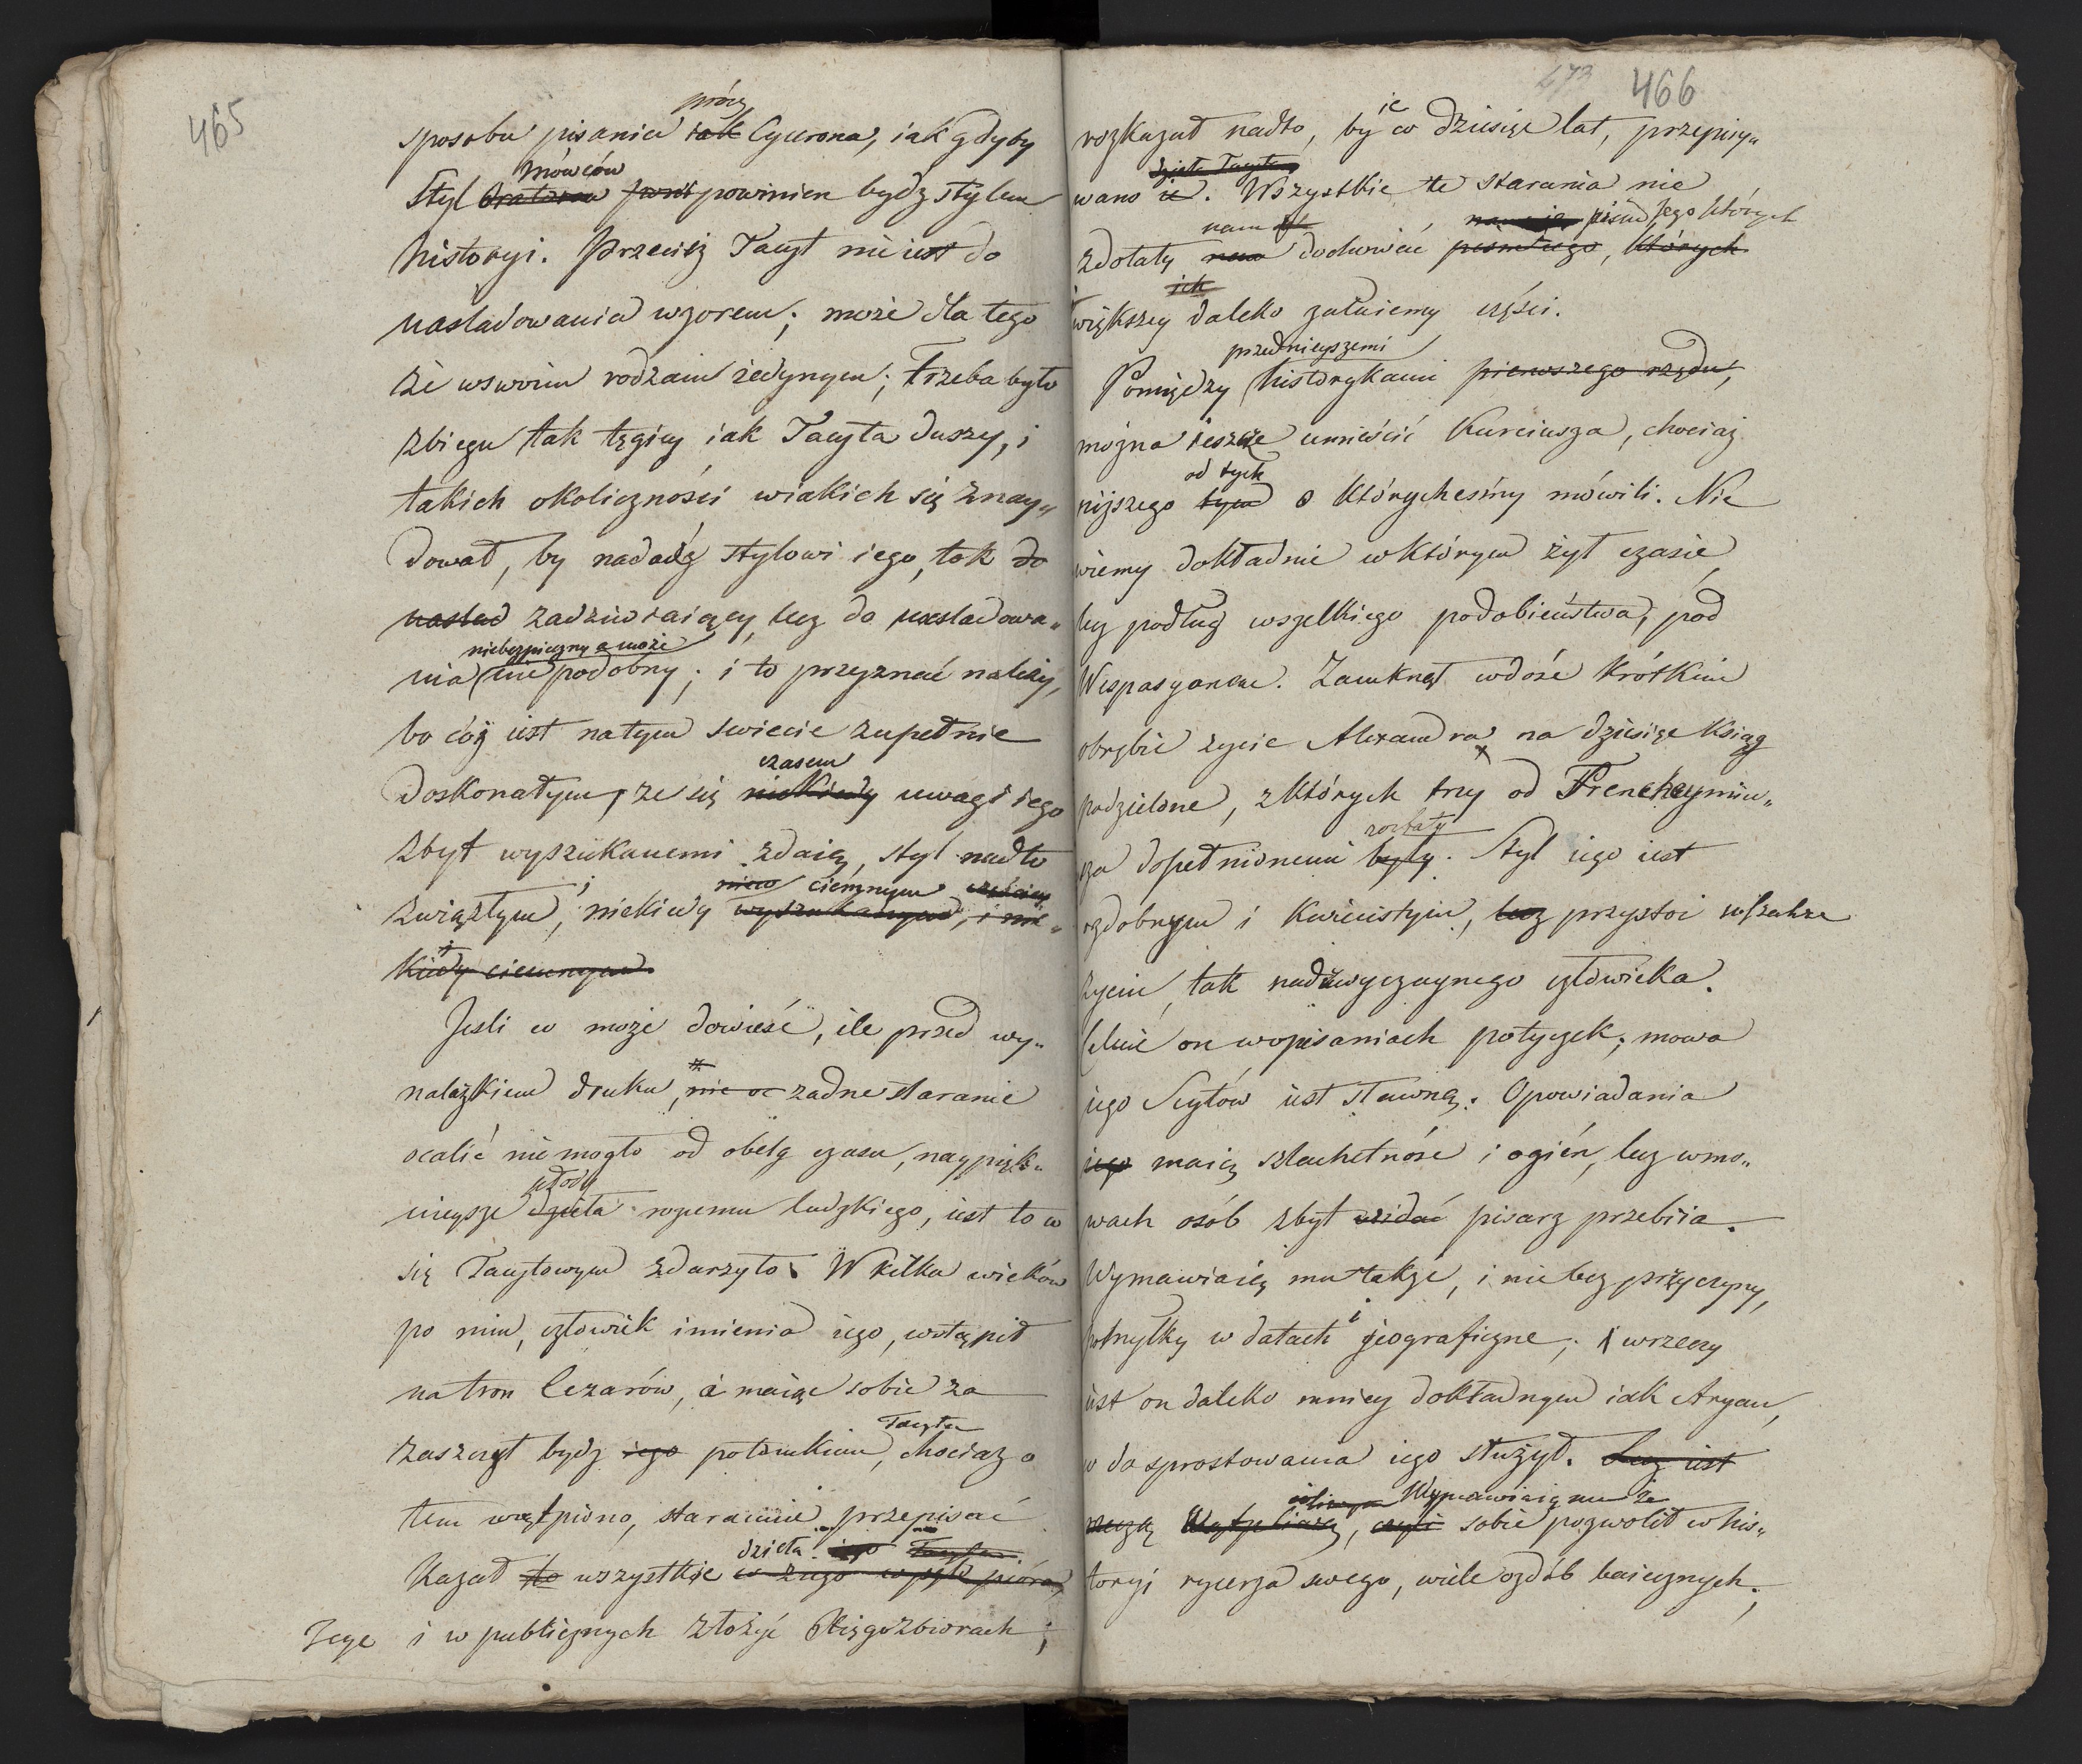 465
prócz
sposobu pisania iak Cycerona, iak gdyby
Mówców
Styl Oratorow powinien bydz stylem
historyi. Przecież Tacyt nie iest do
nasladowania wzorem; może dla tego
że wswoim rodzaiu iedynym; trzeba było
zbiegu tak tęgiey iak Tacyta duszy, i
takich okoliczności wiakich się znay„
dował, by nadadz stylowi iego, tak do
naslad zadziwiaiący, lecz do nasladowa„
niebezpieczny a może
nia nie podobny; i to przyznać należy,
bo cóż iest natym swiecie zupełnie
czasem
doskonałym, ze się niekiedy uwagi iego
zbyt wyszukanemi zdaią, styl nadto
nieco ciemnym
zwięzłym, niekiedy wyszukanym, i nie„
kiedy ciemnym.
Jesli co może dowieść, ile przed wy„
nalazkiem druku, nic oc żadne staranie
ocalić nie mogło od obelg czasu, naypięk„
płody
nieysze dzieła rozumu ludzkiego, iest to co
się Tacytowym zdarzyło. W kilka wieków
po nim, człowiek imienia iego, wstąpił
natron Cezarów, a maiąc sobie za
Tacyta
zaszczyt bydz iego potomkiem, chociaz o
tem wątpiono, starannie przepisać
dzieła iego Tacyta
Kazał to wszystkie co z iego wyszło pióra,
Jego i w publicznych złożyć Xięgozbiorach;
473 466
ie
rozkazał nadto, by co dziesięć lat, przepisy„
dzieła Tacyta
wano ie. Wszystkie te starania nie
nam pism Jego których
zdołały nam dochować pism iego, których
ich
większey daleko żałuiemy części.
przednieyszemi
Pomiędzy historykami pierwszego rzędu,
można ieszcze umieścić Kurciusza, chociaż
od tych
niższego tym o którychesmy mówili. Nie
wiemy dokładnie wktórym żył czasie,
lecz podług wszelkiego podobieństwa, pod
Wespasyanem. Zamknął wdość krótkim
obrębie zycie Alexandra na dziesięć Ksiąg
podzielone, zktórych trzy od Frencheymiu„
zostały
sza dopełnionemi były. Styl iego iest
ozdobnym i kwiecistym, lecz przystoi wszakze
życiu, tak nadzwyczaynego człowieka.
Celuie on wopisaniach potyczek; mowa
iego Scytów iest sławną. Opowiadania
iego maią szlachetność i ogień, lecz wmo„
wach osób zbyt widać pisarz przebiia.
Wymawiaią mu także, i nie bez przyczyny,
pomyłky w datach i jeograficzne; i wrzeczy
iest on daleko mniey dokładnym iak Aryan,
co do sprostowania iego służył. Lecz iest
Wymawiaią mu że
rzeczą, czyli sobie pozwolił whis„
toryi rycerza swego, wiele ozdób baiecznych;